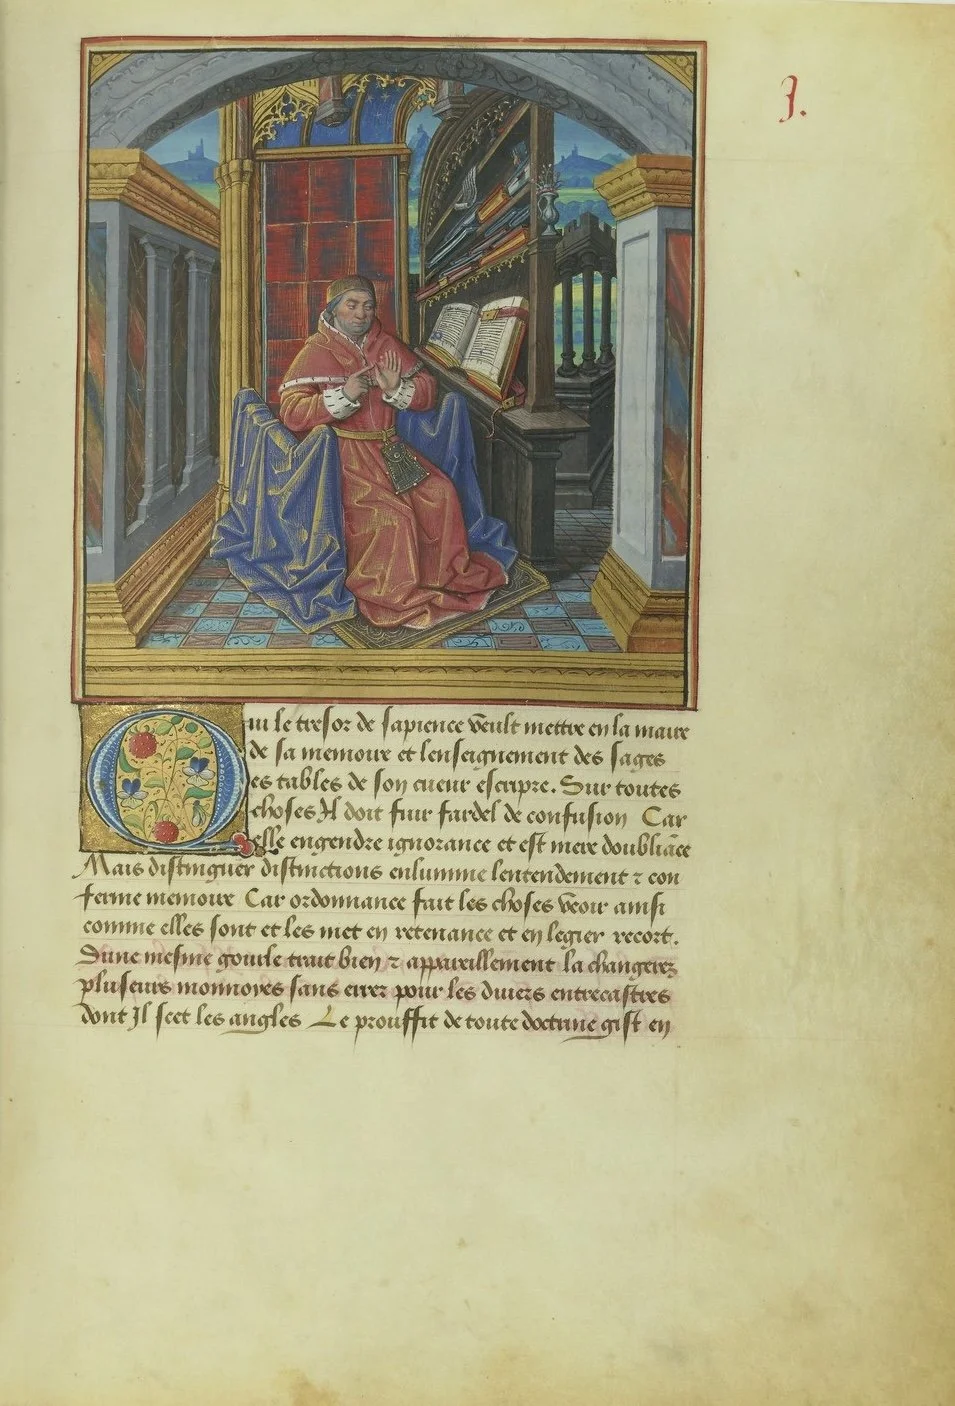 3.
Qui le tresor de sapience veult mettre en la maire
de sa memoire et lenseignement des sages
es tables de son cueur escripre. Sur toutes
choses Il doit fuir fardel de confusion Car
elle engendre ignorance et est mere doubliãce
Mais distinguer distinctions enlumine lentendement ⁊ con
ferme memoire Car ordonnance fait les choses veoir ainsi
comme elles sont et les met en retenance et en legier recort.
Dune mesme trait bien ⁊ appareillement la changerez
plusieurs monnoyes sans errer pour les diuers entrecastres
dont Il scet les angles Le prouffit de toute doctrine gist en